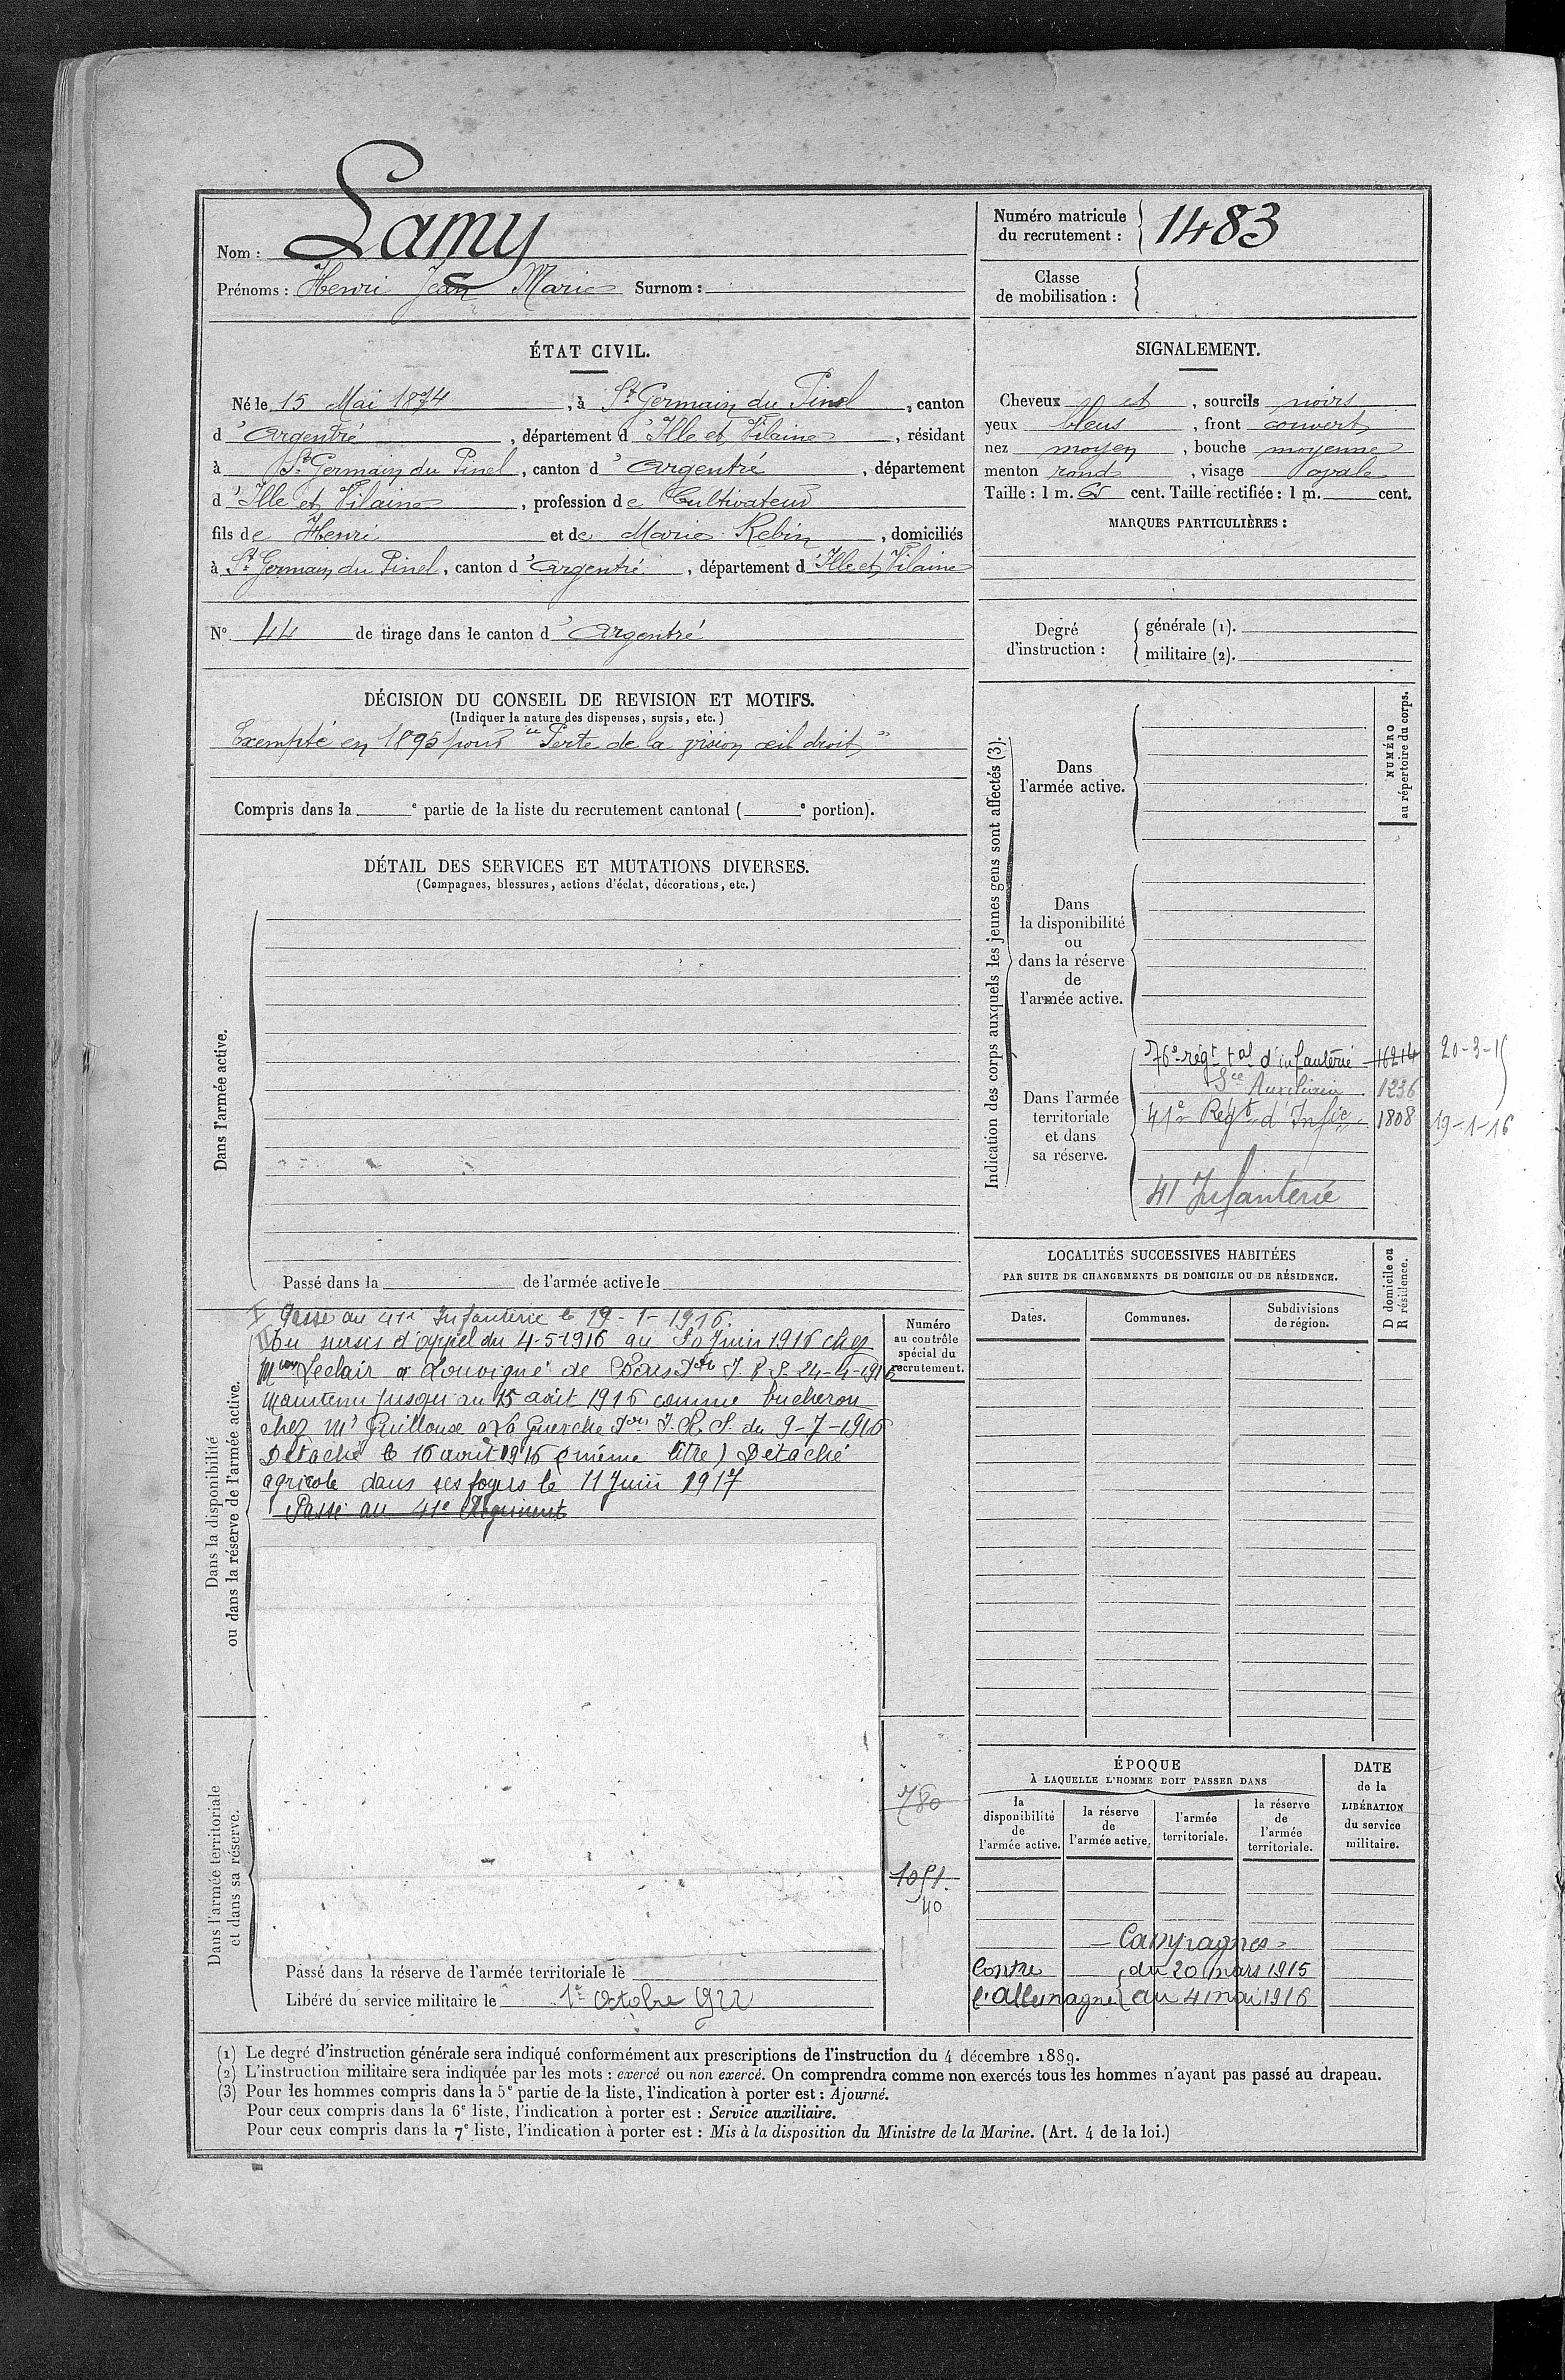 Nom : Lamy
Prénoms : Henri Jean Marie Surnom :
Numéro matricule
du recrutement : 1483
Classe
de mobilisation :
ÉTAT CIVIL.
Né le 15 Mai 1874, à St Germain du Pinel, canton
d'Argentré, département d'Ille et Vilaine, résidant
à St Germain du Pinel, canton d'Argentré, département
d'Ille et Vilaine, profession de Cultivateur
fils de Henri et de Marie Rebin, domiciliés
à St Germain du Pinel, canton d'Argentré, département d'Ille et Vilaine
N° 44 de tirage dans le canton d'Argentré
SIGNALEMENT.
Cheveux et, sourcils noirs
yeux bleus, front couvert
nez moyen, bouche moyenne
menton rond, visage ovale
Taille : 1 m. 65 cent. Taille rectifiée : 1 m. cent.
MARQUES PARTICULIÈRES :
Degré
d'instruction :
générale (1).
militaire (2).
DÉCISION DU CONSEIL DE REVISION ET MOTIFS.
(Indiquer la nature des dispenses, sursis, etc.)
Exempté en 1895 pour "Perte de la vision œil droit"
Compris dans la e partie de la liste du recrutement cantonal ( e portion).
DÉTAIL DES SERVICES ET MUTATIONS DIVERSES.
(Campagnes, blessures, actions d'éclat, décorations, etc.)
Dans l'armée active.
Passé dans la de l'armée active le
Indication des corps auxquels les jeunes gens sont affectés (3).
NUMÉRO
au répertoire du corps.
Dans
l'armée active.
Dans
la disponibilité
ou
dans la réserve
de
l'armée active.
Dans l'armée
territoriale
et dans
sa réserve.
76e régt tal d'infanterie 16214 20-3-15
Sce Auxiliaire 1236
41e Régt d'Infie 1808 19-1-16
41 Infanterie
Dans la disponibilité
ou dans la réserve de l'armée active.
I Passé au 41e Infanterie le 19-1-1916.
sursis d'appel du 4-5-1916 au 30 Juin 1916 chez
Leclair à Louvigné de Bais 24-4-1916
maintenu jusqu'au 15 août 1916 comme bucheron
chez Mr Guillouse à La Guerche du 9-7-1916
Détaché le 16 août 1916 (même titre) Détaché
agricole dans ses foyers le 11 Juin 1917
Passé au 41e Régiment
Numéro
au contrôle
spécial du
recrutement.
LOCALITÉS SUCCESSIVES HABITÉES
PAR SUITE DE CHANGEMENTS DE DOMICILE OU DE RÉSIDENCE.
Dates.
Communes.
Subdivisions
de région.
D domicile ou
R résidence.
Dans l'armée territoriale
et dans sa réserve.
780
1051.
40
Passé dans la réserve de l'armée territoriale le
Libéré du service militaire le 1er Octobre 1922
ÉPOQUE
À LAQUELLE L'HOMME DOIT PASSER DANS
la
disponibilité
de
l'armée active.
la réserve
de
l'armée active.
l'armée
territoriale.
la réserve
de
l'armée
territoriale.
DATE
de la
LIBÉRATION
du service
militaire.
– Campagnes –
Contre du 20 mars 1915
l'Allemagne au 4 mai 1916
(1) Le degré d'instruction générale sera indiqué conformément aux prescriptions de l'instruction du 4 décembre 1889.
(2) L'instruction militaire sera indiquée par les mots : exercé ou non exercé. On comprendra comme non exercés tous les hommes n'ayant pas passé au drapeau.
(3) Pour les hommes compris dans la 5e partie de la liste, l'indication à porter est : Ajourné.
Pour ceux compris dans la 6e liste, l'indication à porter est : Service auxiliaire.
Pour ceux compris dans la 7e liste, l'indication à porter est : Mis à la disposition du Ministre de la Marine. (Art. 4 de la loi.)